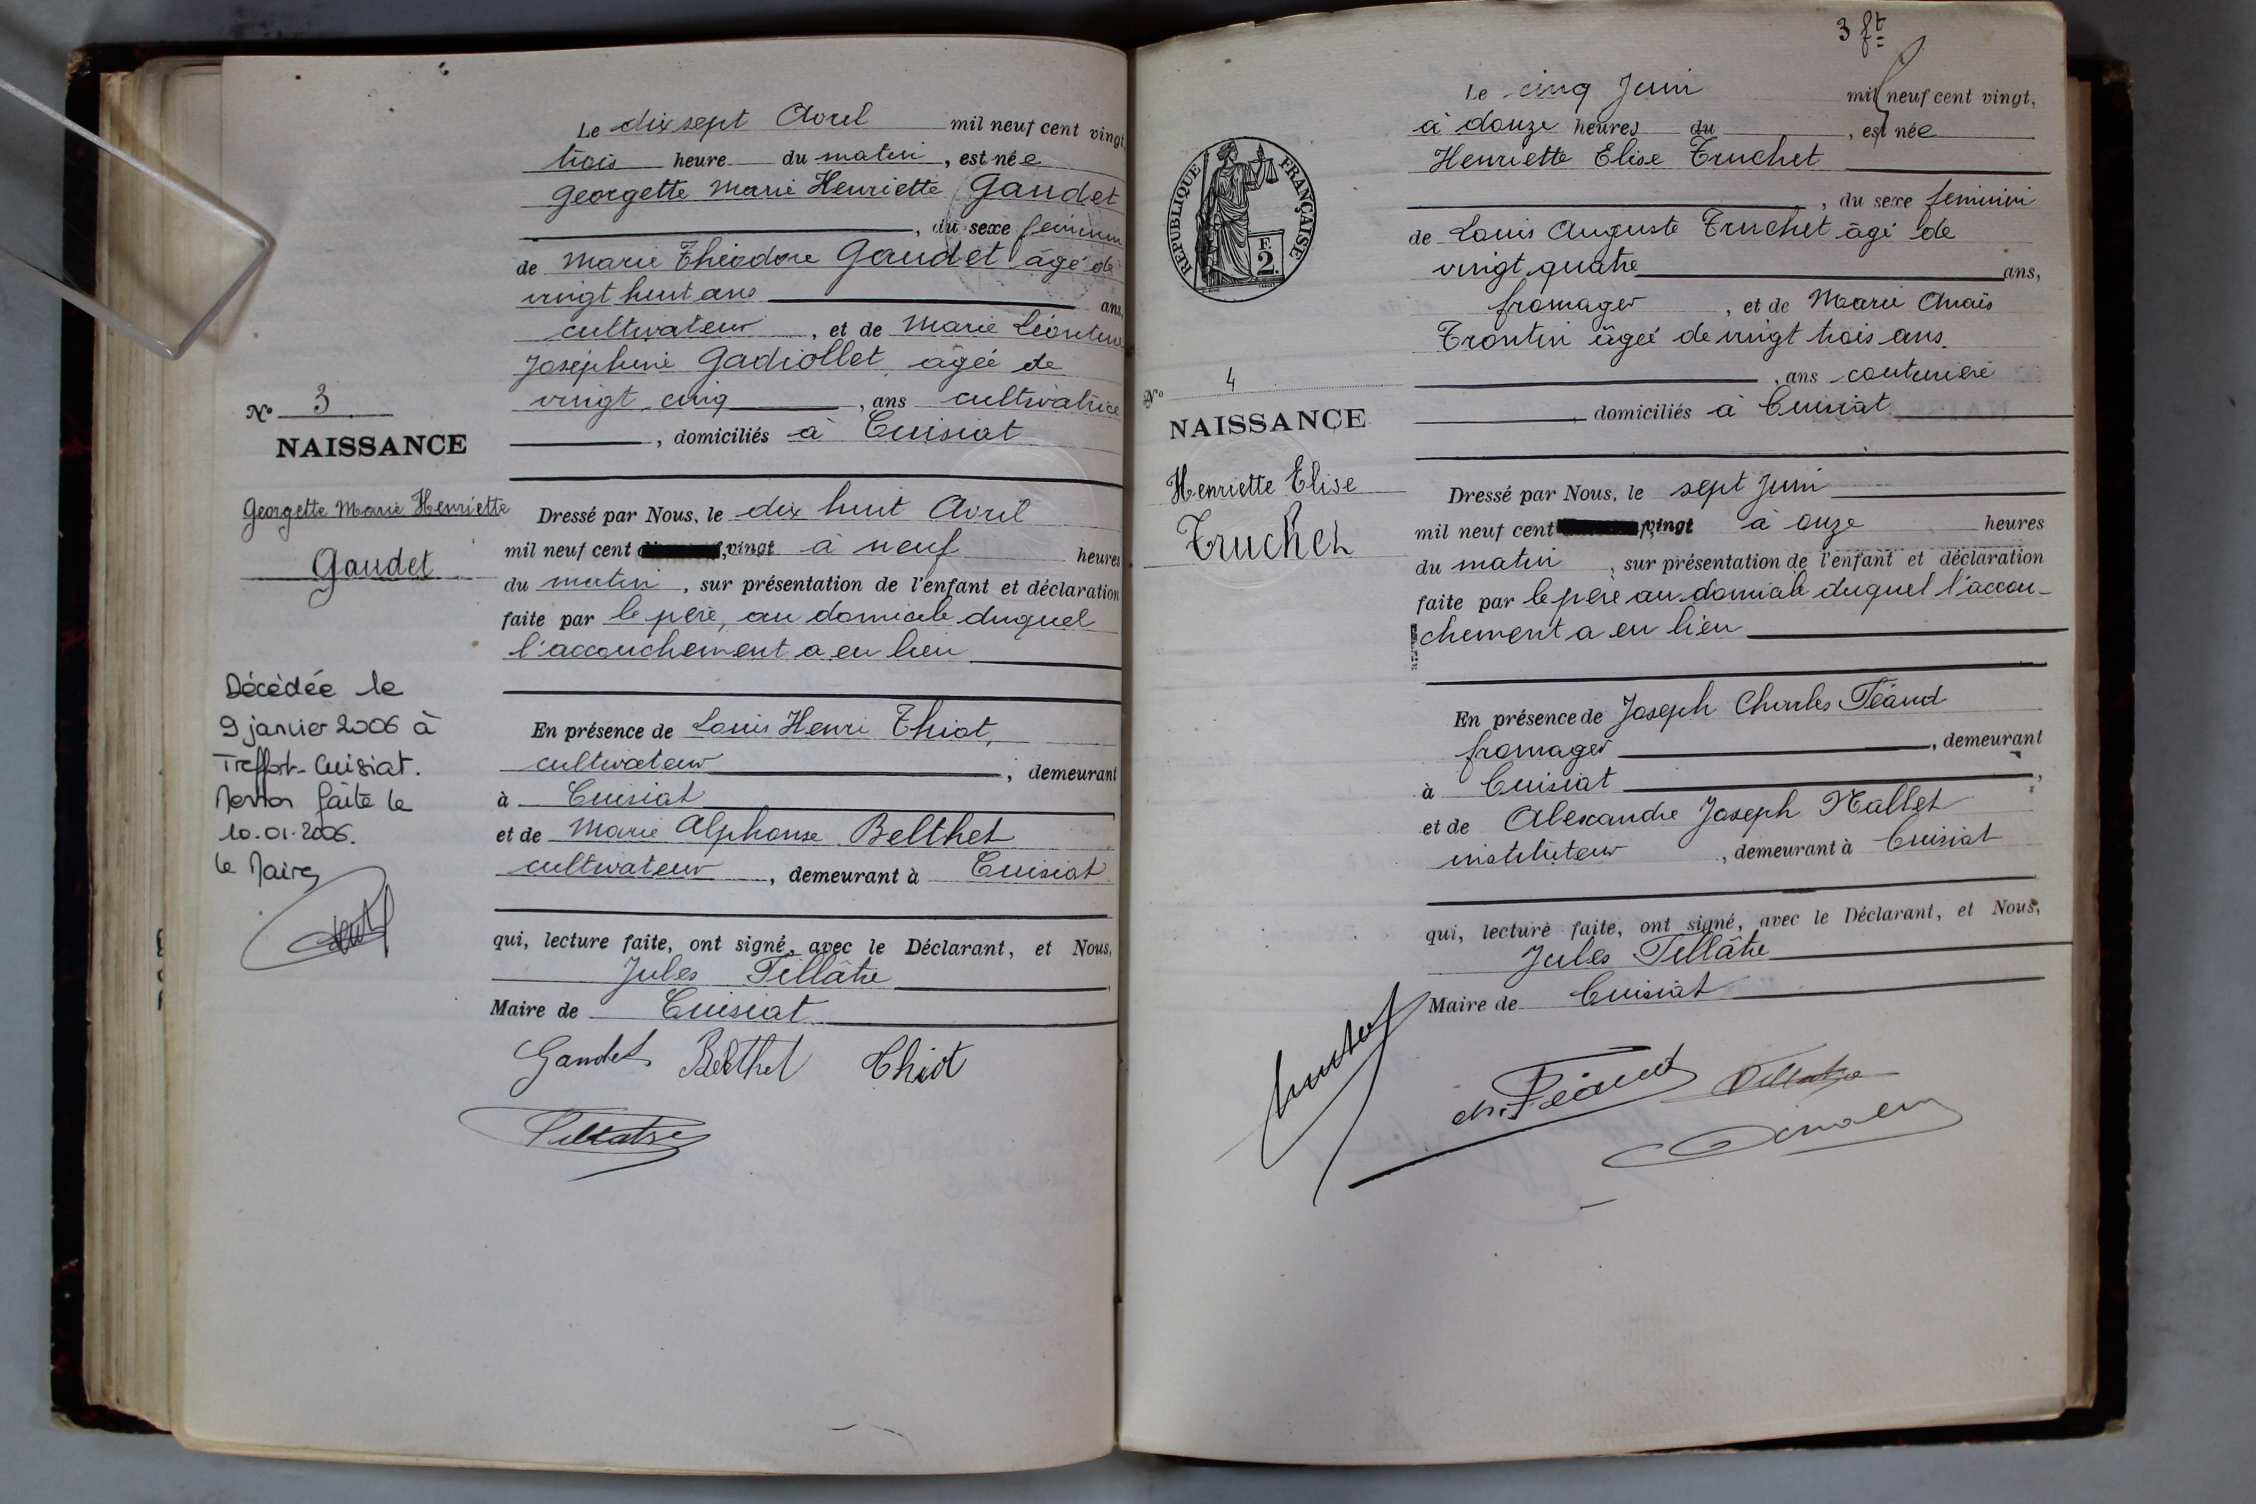 Le dix sept Avril mil neuf cent vingt,
trois heure du matin, est née
Georgette Marie Henriette Gaudet
, du sexe feminin
de Marie Théodore Gaudet âgé de
vingt huit ans ans,
cultivateur, et de Marie Léontine
Joséphine Gadiollet âgée de
vingt cinq, ans cultivatrice
, domiciliés à Cuisiat
Nº 3
NAISSANCE
Georgette Marie Henriette
Gaudet
Dressé par Nous, le dix huit Avril
mil neuf cent vingt à neuf heures
du matin, sur présentation de l'enfant et déclaration
faite par le père, au domicile duquel
l'accouchement a eu lieu
Décédée le
9 janvier 2006 à
Treffort-Cuisiat.
Mention faite le
10.01.2006.
le Maire,
En présence de Louis Henri Thiot,
cultivateur, demeurant
à Cuisiat
et de Marie Alphonse Belthet
cultivateur, demeurant à Cuisiat
qui, lecture faite, ont signé, avec le Déclarant, et Nous,
Jules Tillâtre
Maire de Cuisiat
Gaudet Belthet Thiot
3 ft
Le cinq Juin mil neuf cent vingt,
à douze heures du, est née
Henriette Elise Truchet
, du sexe feminin
de Louis Auguste Truchet âgé de
vingt quatre ans,
fromager, et de Marie Anaïs
Trontin âgée de vingt trois ans.
, ans couturière
domiciliés à Cuisiat
RÉPUBLIQUE FRANÇAISE
F.
2.
Nº 4
NAISSANCE
Henriette Elise
Truchet
Dressé par Nous, le sept Juin
mil neuf cent vingt à onze heures
du matin, sur présentation de l'enfant et déclaration
faite par le père au domicile duquel l'accou-
chement a eu lieu
En présence de Joseph Charles Féaud
fromager, demeurant
à Cuisiat,
et de Alexandre Joseph Mallet
instituteur, demeurant à Cuisiat
qui, lecture faite, ont signé, avec le Déclarant, et Nous,
Jules Tillâtre
Maire de Cuisiat
ch. Féaud